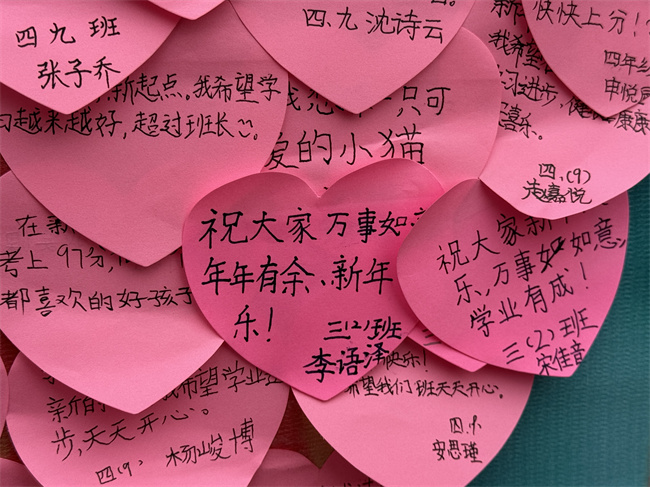 四九班
张子乔
四.九 沈诗云
快快上分!
四年
申悦
新起点。我希望学
越来越好,超过班长
一只可
爱的小猫
我希望
习进步,健康
喜乐。
四.(9)
在新
考上97分,
都喜欢的好孩子
祝大家万事如意
年年有余、新年
乐!
三(2)班
李语泽
祝大家新
乐,万事如如意,
学业有成!
三(2)班
宋佳音
新的
希望学业
步,天天开心。
四(9) 杨峻博
快乐!
希望我们班天天开心。
四.九
安思瑾